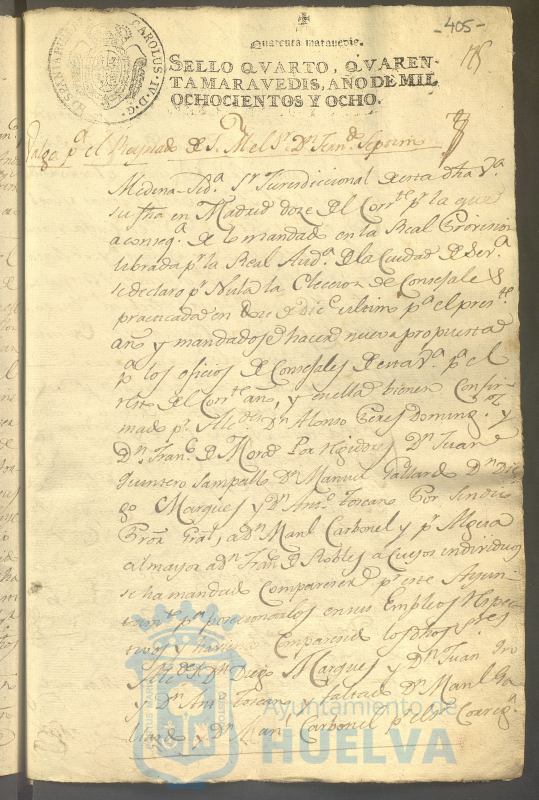 -405-
Quarenta maravedis.
SELLO QVARTO, QVAREN-
TA MARAVEDIS, AÑO DE MIL
OCHOCIENTOS Y OCHO.
CAROLUS IV D G
Valga pª el Reynado de S. M. el Sr. Dn Ferndo Septimo
Medina Sidª Sr Jurisdiccional de esta dha Vª
su fha en Madrid doze del Corrte pr la que
a conseqª de lo mandado en la Real Provision
librada pr la Real Audª de la Ciudad de Sevª
se declaro pr Nula la Eleccion de Consejales
practicada en doze de Dice ultimo pª el preste
año y mandadose hacer nueva propuesta
pª los oficios de Consejales de esta Vª pª el
resto del Corrte año, y en ella bienen Confir-
mados pr Dn Alonso Peres Doming. y
Dn Franco de Mora Por Regidores Dn Juan
Quintero Sampallo Dn Manuel Gallardo Dn Die
go Marques y Dn Anto Toscano Por Sindico
Pror Gral, a Dn Manl Carbonel y pr Alguacil
mayor a Dn Franco de Robles a Cuyos individuos
se ha mandado Comparecer pr este Ayun-
tamto pª posecionarlos en sus Empleos respec-
tivos y haviendo Comparecido los dhos Sres
Dn Diego Marques y Dn Juan
y Dn Anto Toscano, y faltado Dn Manl Ga
llardo y Dn Manl Carbonel pr
Ayuntamiento de
HUELVA